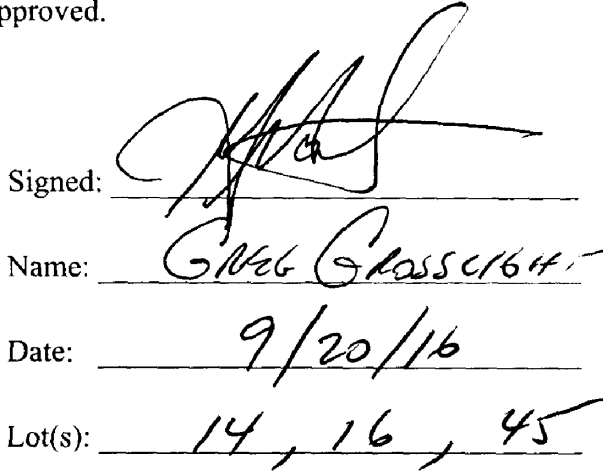 pproved.
Signed:
Name: GREG GROSSLIGHT
Date: 9/20/16
Lot(s): 14, 16, 45